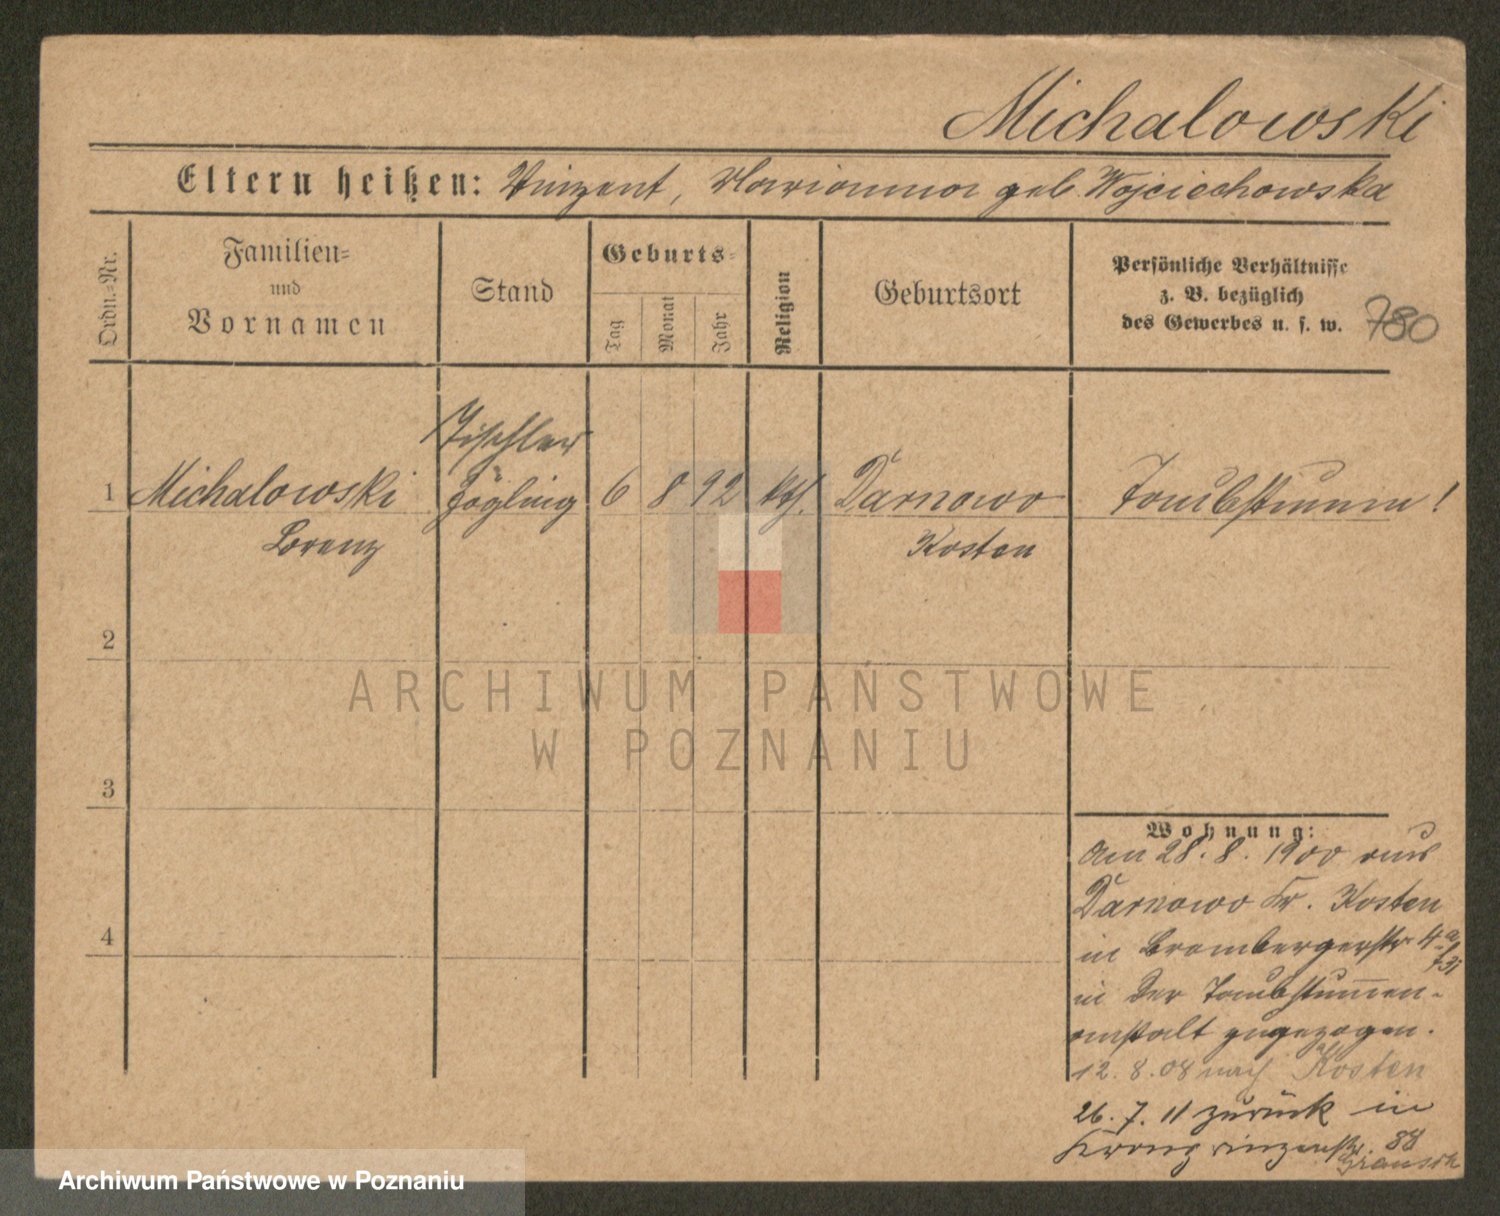 Michalowski
Eltern heißen: Vinzent, Marianna geb. Wojciechowska
Ordn.=Nr.
Familien=
und
Vornamen
Stand
Geburts=
Tag
Monat
Jahr
Religion
Geburtsort
Persönliche Verhältnisse
z. B. bezüglich
des Gewerbes u. s. w.
780
Tischler
1 Michalowski Zögling 6 8 92 kth. Darnowo Taubstumm!
Lorenz Kosten
2
ARCHIWUM PAŃSTWOWE
W POZNANIU
3
4
Wohnung:
Am 28.8.1900 aus
Darnowo Kr. Kosten
in Brombergerstr. 4a
in der Taubstummen-
anstalt zugezogen.
12.8.08 nach Kosten
26.7.11 zurück in
Kronprinzenstr. 88
Archiwum Państwowe w Poznaniu